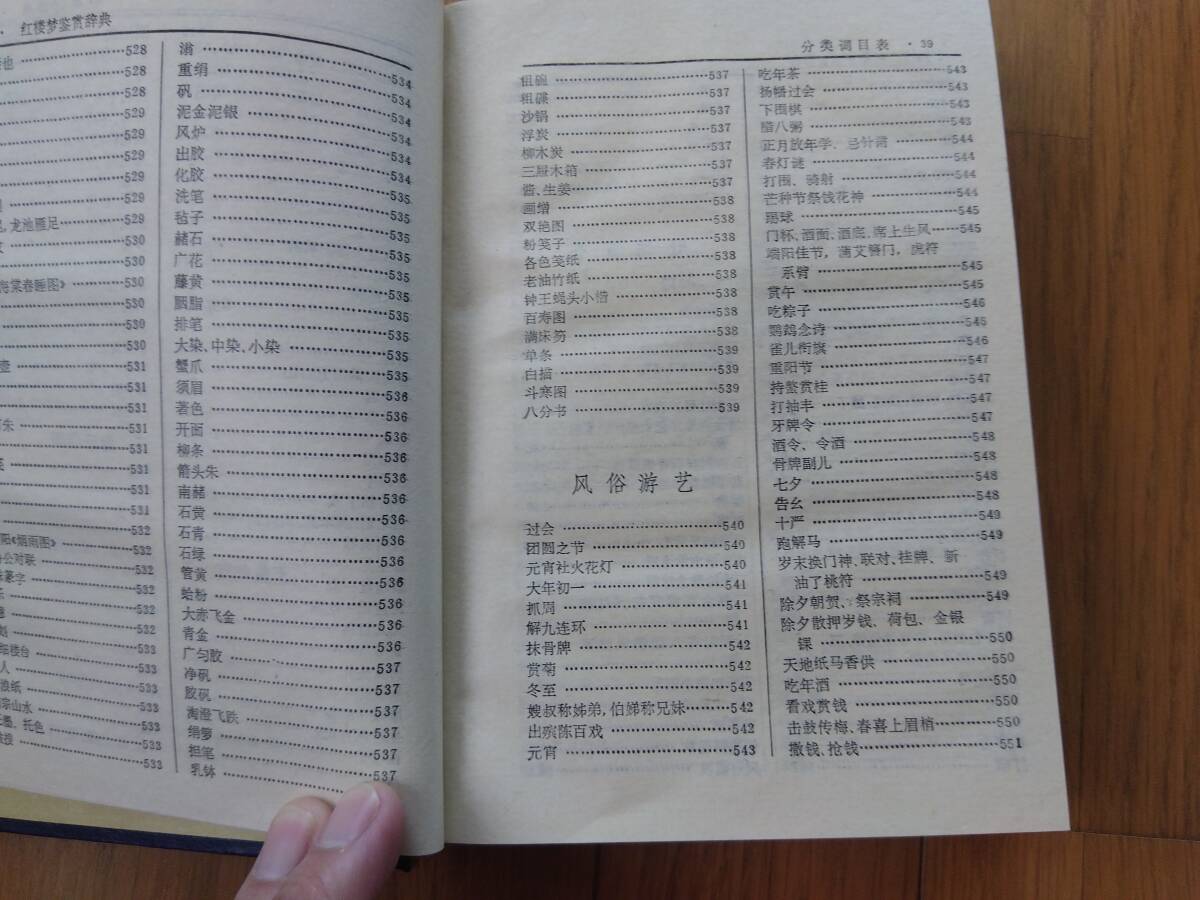 红楼梦鉴赏辞典
也 528
528
528
529
529
529
529
529
龙池雁足 529
530
530
海棠春睡图》 530
530
530
530
壶 531
531
531
朱 531
531
531
531
532
阳《烟雨图》 532
公对联 532
篆字 532
532
532
533
楼台 533
人 533
浪纸 533
宗山水 533
墨、托色 533
533
滃 534
重绢 534
矾 534
泥金泥银 534
风炉 534
出胶 534
化胶 535
洗笔 535
毡子 535
赭石 535
广花 535
藤黄 535
胭脂 535
排笔 535
大染、中染、小染 535
蟹爪 535
须眉 536
著色 536
开面 536
柳条 536
箭头朱 536
南赭 536
石黄 536
石青 536
石绿 536
管黄 536
蛤粉 536
大赤飞金 536
青金 536
广匀胶 537
净矾 537
胶矾 537
淘澄飞跌 537
绢箩 537
担笔 537
乳钵
分类词目表 · 39
粗碗 537
粗碟 537
沙锅 537
浮炭 537
柳木炭 537
三屉木箱 537
酱、生姜 537
画缯 538
双艳图 538
粉笺子 538
各色笺纸 538
老油竹纸 538
钟王蝇头小楷 538
百寿图 538
满床笏 538
单条 539
白描 539
斗寒图 539
八分书 539
风俗游艺
过会 540
团圆之节 540
元宵社火花灯 540
大年初一 541
抓周 541
解九连环 541
抹骨牌 542
赏菊 542
冬至 542
嫂叔称姊弟,伯娣称兄妹 542
出殡陈百戏 542
元宵 543
吃年茶 543
扬幡过会 543
下围棋 543
腊八粥 543
正月放年学、忌针黹 544
春灯谜 544
打围、骑射 544
芒种节祭饯花神 544
踢球 545
门杯、酒面、酒底、席上生风 545
端阳佳节,蒲艾簪门,虎符
系臂 545
赏午 545
吃粽子 546
鹦鹉念诗 545
雀儿衔旗 546
重阳节 547
持螯赏桂 547
打抽丰 547
牙牌令 547
酒令、令酒 548
骨牌副儿 548
七夕 548
告幺 548
十严 549
跑解马 549
岁末换门神、联对、挂牌、新
油了桃符 549
除夕朝贺、祭宗祠 549
除夕散押岁钱、荷包、金银
锞 550
天地纸马香供 550
吃年酒 550
看戏赏钱 550
击鼓传梅、春喜上眉梢 550
撒钱、抢钱 551